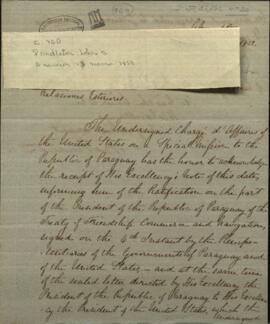 Relaciones Exteriores.
The Undersigned Chargé d'Affaires of
the United States on a Special Mission to the
Republic of Paraguay has the honor to acknowledge
the receipt of His Excellency's Note of this date,
informing him of the Ratification on the part
of the President of the Republic of Paraguay of the
Treaty of Friendship, Commerce and Navigation,
signed on the 4th Instant by the Plenipo-
tentiaries of the Governments of Paraguay and
of the United States— and at the same time
of the sealed letter directed by His Excellency the
President of the Republic of Paraguay to His Excellen-
cy the President of the United States, which the
Undersigned